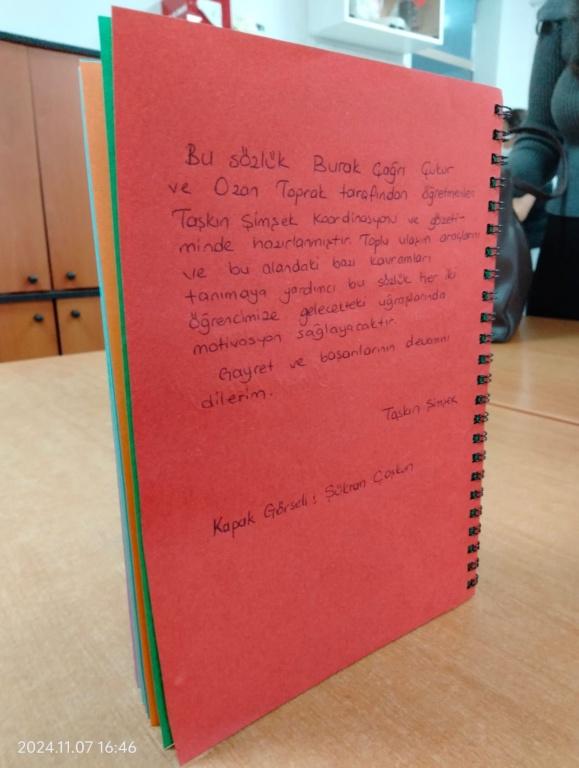 Bu sözlük Burak Çağrı Çukur
ve Ozan Toprak tarafından öğretmenleri
Taşkın Şimşek koordinasyonu ve gözeti-
minde hazırlanmıştır. Toplu ulaşım araçlarını
ve bu alandaki bazı kavramları
tanımaya yardımcı bu sözlük her iki
öğrencimize gelecekteki uğraşlarında
motivasyon sağlayacaktır.
Gayret ve başarılarının devamını
dilerim.
Taşkın Şimşek
Kapak Görseli: Şükran Coşkun
2024.11.07 16:46